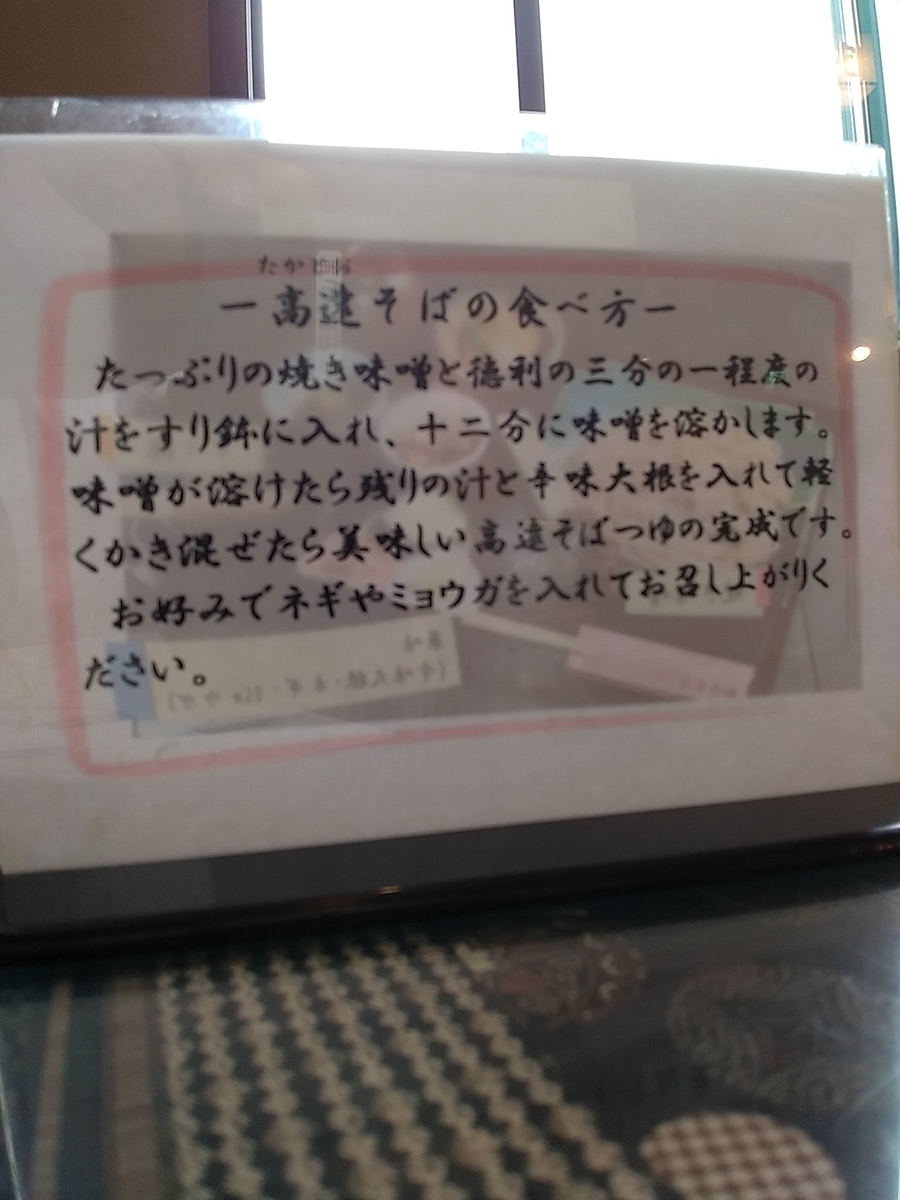 たかとお
ー高遠そばの食べ方ー
たっぷりの焼き味噌と徳利の三分の一程度の
汁をすり鉢に入れ、十二分に味噌を溶かします。
味噌が溶けたら残りの汁と辛味大根を入れて軽
くかき混ぜたら美味しい高遠そばつゆの完成です。
お好みでネギやミョウガを入れてお召し上がりく
ださい。